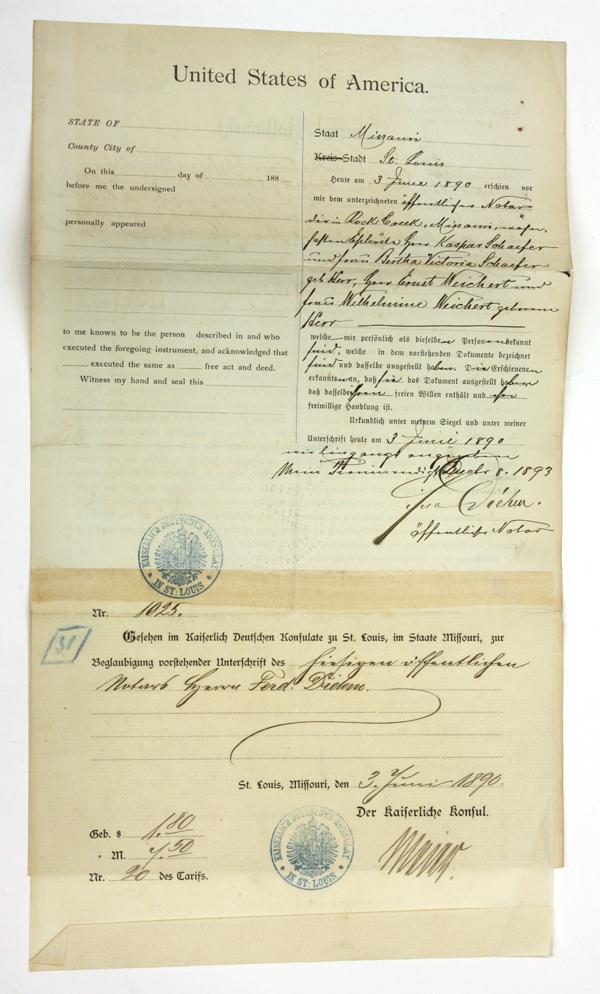 United States of America.
STATE OF
County City of
On this day of 188
before me the undersigned
personally appeared
to me known to be the person described in and who
executed the foregoing instrument, and acknowledged that
executed the same as free act and deed.
Witness my hand and seal this
Staat Missouri
Kreis-Stadt St. Louis
Heute am 3 Juni 1890 erschien vor
mir dem unterzeichneten öffentlichen Notar
die in Rock Creek, Missouri, wohn-
haften Eheleute Herr Kaspar Schaefer
und Frau Bertha Victoria Schaefer
geb Herr, Herr Ernst Weichert und
Frau Wilhelmine Weichert geborene
Herr
welche mir persönlich als dieselben Personen bekannt
sind, welche in dem vorstehenden Dokumente bezeichnet
sind und dasselbe ausgestellt haben. Die Erschienenen
erkannten an, daß sie das Dokument ausgestellt haben
daß dasselbe ihren freien Willen enthält und ihre
freiwillige Handlung ist.
Urkundlich unter meinem Siegel und unter meiner
Unterschrift heute am 3 Juni 1890
wie Eingangs angegeben
Mein Termin 8. 1893
öffentlicher Notar
KAISERLICH DEUTSCHES KONSULAT
IN ST: LOUIS
Nr. 1025.
Gesehen im Kaiserlich Deutschen Konsulate zu St. Louis, im Staate Missouri, zur
Beglaubigung vorstehender Unterschrift des hiesigen öffentlichen
Notars Herrn Ferd. Diehm.
St. Louis, Missouri, den 3. Juni 1890.
Der Kaiserliche Konsul.
Geb. $ 1.80
" M. 7.50
Nr. 20 des Tarifs.
KAISERLICH DEUTSCHES KONSULAT
IN ST: LOUIS